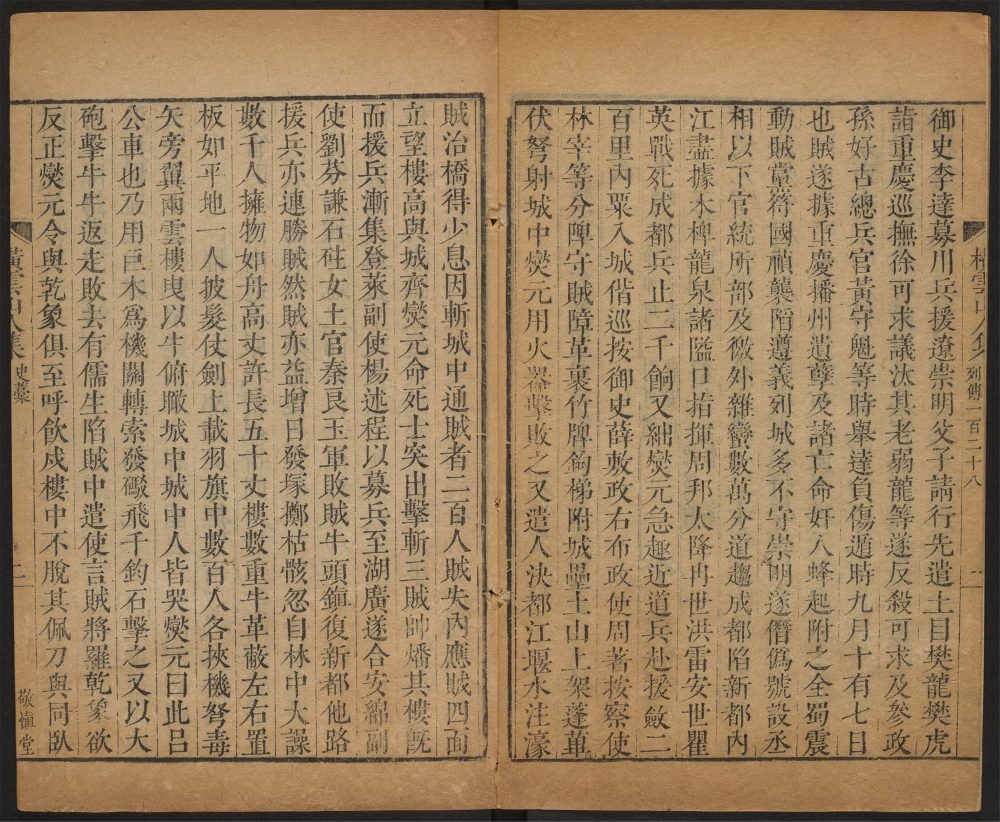 御史李達募川兵援遼崇明父子請行先遣土目樊龍樊虎
詣重慶巡撫徐可求議汰其老弱龍等遂反殺可求及參政
孫好古總兵官黃守魁等時舉達負傷遁時九月十有七日
也賊遂據重慶播州遺孽及諸亡命奸人蜂起附之全蜀震
動賊黨符國禎襲陷遵義列城多不守崇明遂僭僞號設丞
相以下官統所部及徼外雜蠻數萬分道趨成都陷新都內
江盡據木椑龍泉諸隘口指揮周邦太降冉世洪雷安世瞿
英戰死成都兵止二千餉又絀燮元急趣近道兵赴援斂二
百里內粟入城偕巡按御史薛敷政右布政使周著按察使
林宰等分陴守賊障革裹竹牌鉤梯附城壘土山上架蓬蓽
伏弩射城中燮元用火器擊敗之又遣人決都江堰水注濠
列傳一百二十八
賊治橋得少息因斬城中通賊者二百人賊失內應賊四面
立望樓高與城齊燮元命死士突出擊斬三賊帥燔其樓旣
而援兵漸集登萊副使楊述程以募兵至湖廣遂合安綿副
使劉芬謙石砫女土官秦良玉軍敗賊牛頭鎮復新都他路
援兵亦連勝賊然賊亦益增日發塚擲枯骸忽自林中大譟
數千人擁物如舟高丈許長五十丈樓數重牛革蔽左右置
板如平地一人披髮仗劍上載羽旗中數百人各挾機弩毒
矢旁翼兩雲樓曳以牛俯瞰城中城中人皆哭燮元曰此呂
公車也乃用巨木爲機關轉索發礮飛千鈞石擊之又以大
砲擊牛牛返走敗去有儒生陷賊中遣使言賊將羅乾象欲
反正燮元令與乾象俱至呼飮戍樓中不脫其佩刀與同臥
史藳
二
敬愼堂